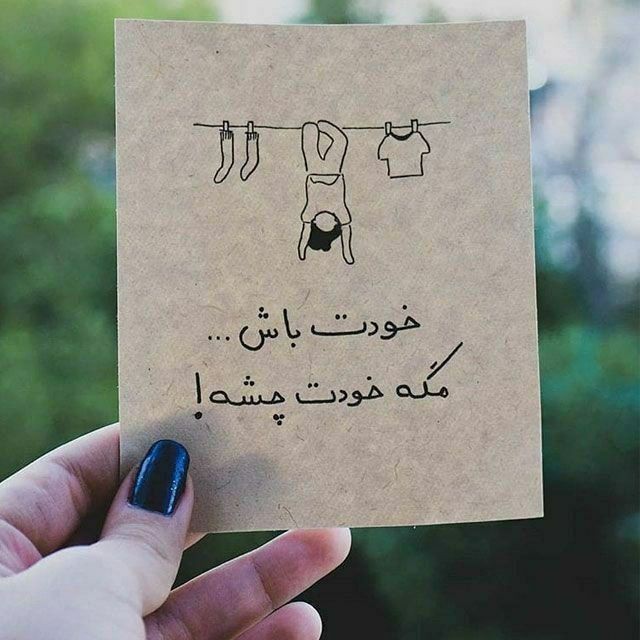 خودت باش ...
مگه خودت چشه!